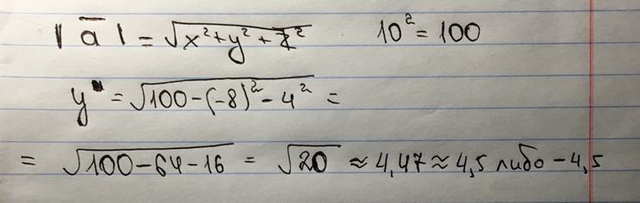 |a̅| = √x²+y²+z² 10² = 100
y = √100-(-8)²-4² =
= √100-64-16 = √20 ≈ 4,47 ≈ 4,5 либо -4,5